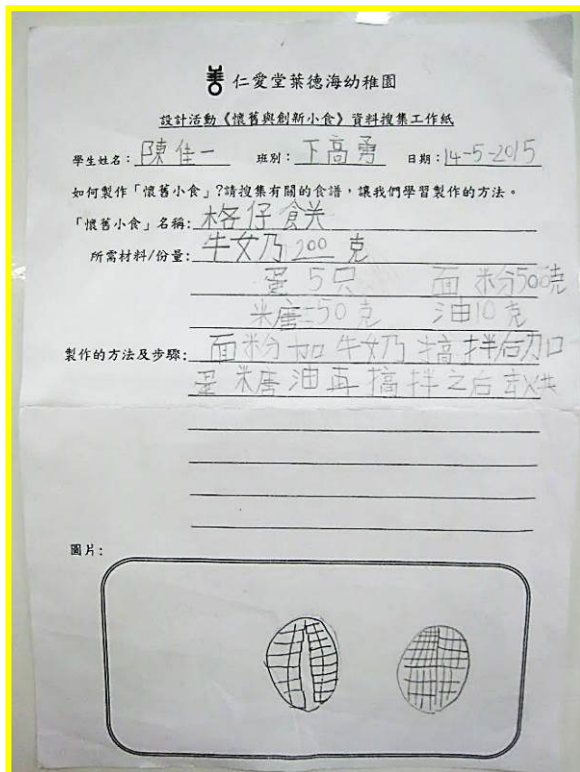 仁愛堂葉德海幼稚園
設計活動《懷舊與創新小食》資料搜集工作紙
學生姓名：陳佳一 班別：下高勇 日期：14-5-2015
如何製作「懷舊小食」?請搜集有關的食譜，讓我們學習製作的方法。
「懷舊小食」名稱：格仔餅
所需材料/份量：牛奶200克
蛋5只 面粉500克
糖50克 油10克
製作的方法及步驟：面粉加牛奶搞拌后加
蛋糖油再搞拌之后
圖片：